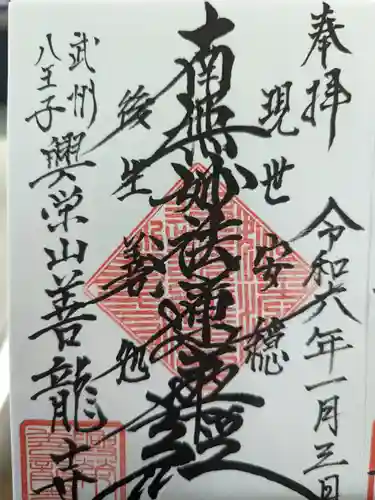 奉拝
令和六年一月三日
現世安穏
南無妙法蓮華経
後生善処
武州
八王子
興栄山善龍寺